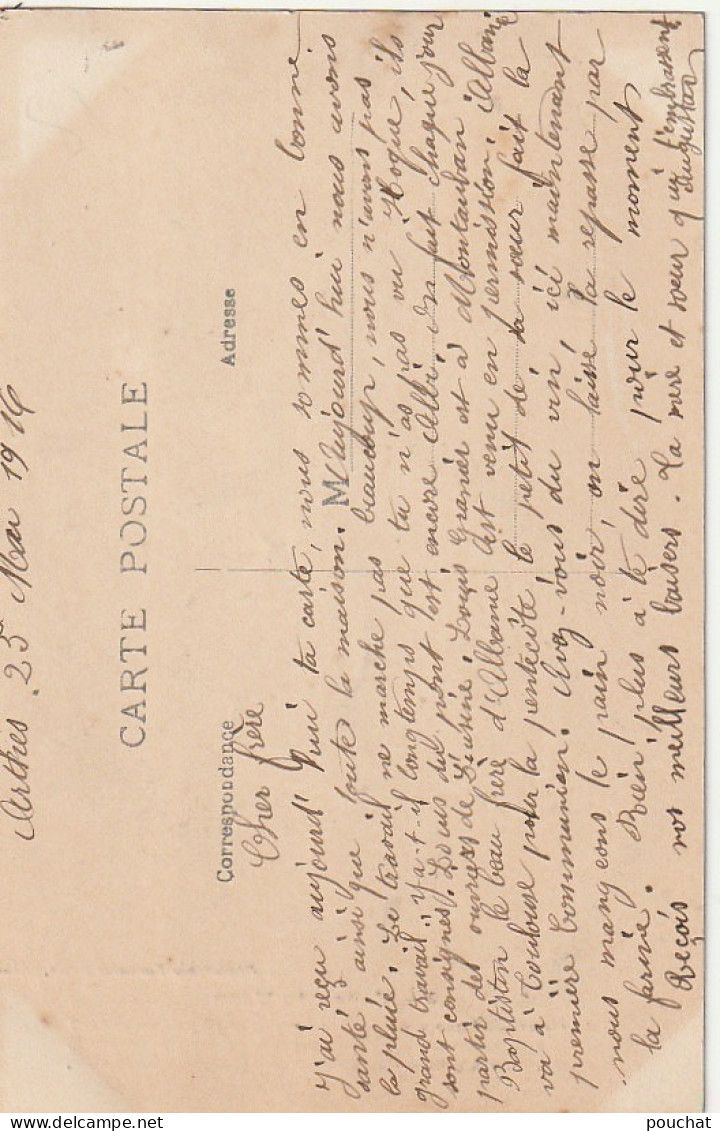 Arthès. 25 Mai 1916
CARTE POSTALE
Correspondance
Adresse
M
Cher frère
J'ai reçu aujourd'hui ta carte, nous sommes en bonne
santé ainsi que toute la maison. Aujourd'hui nous avons
la pluie. Le travail ne marche pas beaucoup, nous n'avons pas
grand travail, y a-t-il longtemps que tu n'as pas vu Roque, ils
sont consignés. Louis du pont est encore Albi. On fait chaque jour
partir des ouvriers de l'usine. Louis Granier est à Montauban Albanie
Baptiston le beau frère d'Albanie est venu en permission,
va à Toulouse pour la pentecôte le petit de sa sœur fait la
première Communion. Avez-vous du vin, ici maintenant
nous mangeons le pain noir, on laisse la repasse par
la farine. Rien plus à te dire pour le moment
Reçois nos meilleurs baisers. Ta mère et sœur qui t'embrassent
Augusta
pouchat